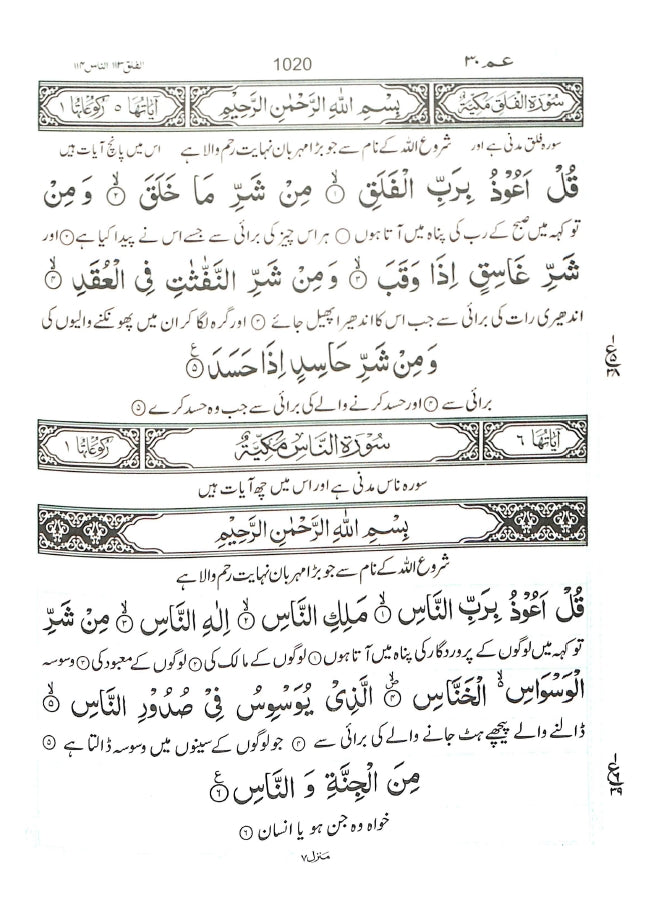 عـم ٣٠ 1020 الفلق ١١٣ الناس ١١٤
سُوْرَةُ الْفَلَقِ مَكِّيَّةٌ بِسْمِ اللهِ الرَّحْمٰنِ الرَّحِيْمِ اٰيَاتُهَا ٥ رُكُوْعَاتُهَا ١
سورہ فلق مدنی ہے اور شروع اللہ کے نام سے جو بڑا مہربان نہایت رحم والا ہے اس میں پانچ آیات ہیں
قُلْ اَعُوْذُ بِرَبِّ الْفَلَقِ ۙ﴿١﴾ مِنْ شَرِّ مَا خَلَقَ ۙ﴿٢﴾ وَ مِنْ
تو کہہ میں صبح کے رب کی پناہ میں آتا ہوں ۝ ہر اس چیز کی برائی سے جسے اس نے پیدا کیا ہے ۝ اور
شَرِّ غَاسِقٍ اِذَا وَقَبَ ۙ﴿٣﴾ وَ مِنْ شَرِّ النَّفّٰثٰتِ فِى الْعُقَدِ ۙ﴿٤﴾
اندھیری رات کی برائی سے جب اس کا اندھیرا پھیل جائے ۝ اور گرہ لگا کر ان میں پھونکنے والیوں کی
وَ مِنْ شَرِّ حَاسِدٍ اِذَا حَسَدَ ۧ﴿٥﴾
برائی سے ۝ اور حسد کرنے والے کی برائی سے جب وہ حسد کرے ﴿٥﴾
١ ع ٥ ٣٨
اٰيَاتُهَا ٦ سُوْرَةُ النَّاسِ مَكِّيَّةٌ رُكُوْعَاتُهَا ١
سورہ ناس مدنی ہے اور اس میں چھ آیات ہیں
بِسْمِ اللهِ الرَّحْمٰنِ الرَّحِيْمِ
شروع اللہ کے نام سے جو بڑا مہربان نہایت رحم والا ہے
قُلْ اَعُوْذُ بِرَبِّ النَّاسِ ۙ﴿١﴾ مَلِكِ النَّاسِ ۙ﴿٢﴾ اِلٰهِ النَّاسِ ۙ﴿٣﴾ مِنْ شَرِّ
تو کہہ میں لوگوں کے پروردگار کی پناہ میں آتا ہوں ﴿١﴾ لوگوں کے مالک کی ﴿٢﴾ لوگوں کے معبود کی ﴿٣﴾ وسوسہ
الْوَسْوَاسِ ۙ الْخَنَّاسِ ۪ۙ﴿٤﴾ الَّذِىْ يُوَسْوِسُ فِىْ صُدُوْرِ النَّاسِ ۙ﴿٥﴾
ڈالنے والے پیچھے ہٹ جانے والے کی برائی سے ﴿٤﴾ جو لوگوں کے سینوں میں وسوسہ ڈالتا ہے ﴿٥﴾
مِنَ الْجِنَّةِ وَ النَّاسِ ۧ﴿٦﴾
خواہ وہ جن ہو یا انسان ﴿٦﴾
١ ع ٦ ٣٩
منزل ٧